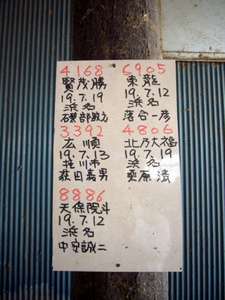 4168
賢茂勝
19.7.19
浜名
磯部敏方
6905
東龍
19.7.12
浜名
落合一彦
3392
広順
19.7.13
掛川市
萩田義男
4806
北乃大福
19.7.19
浜名
桑原清
8886
天保院斗
19.7.12
浜名
中安誠二